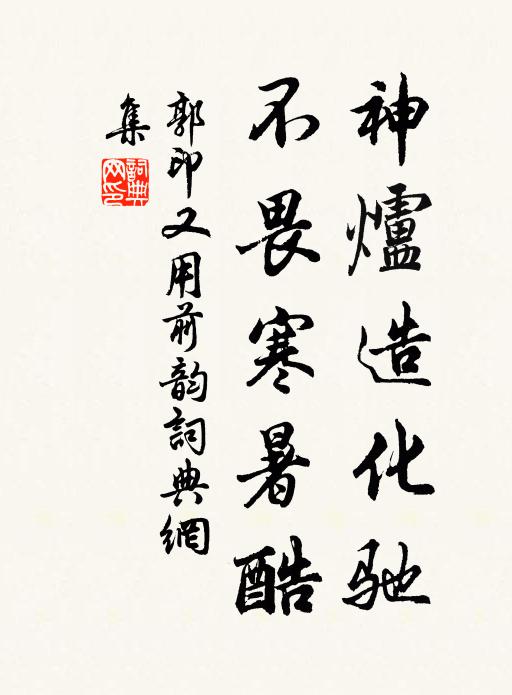 神爐造化馳
不畏寒暑酷
郭印又用前韵詞典網
集
詞典网印